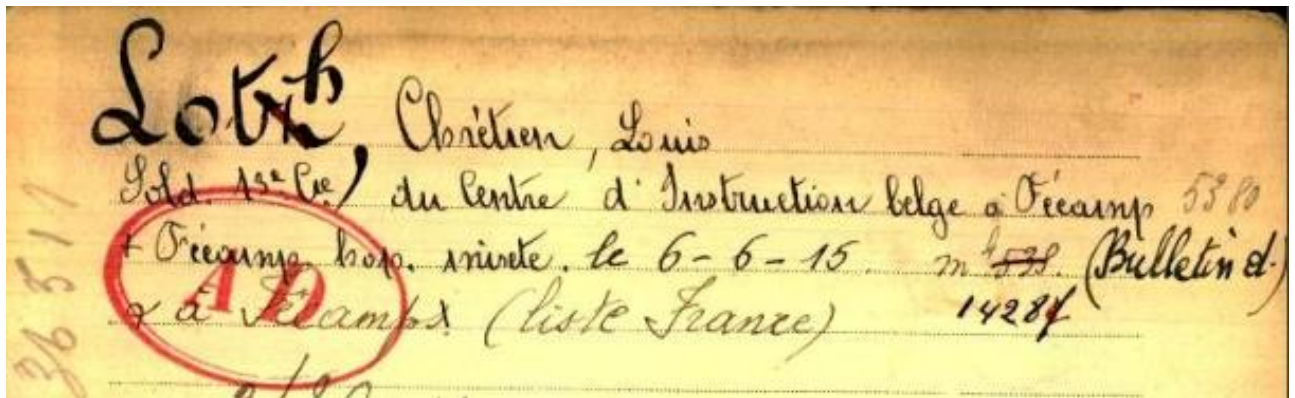 Loth, Chrétien, Louis
Sold. 13e Cie) du Centre d'Instruction belge à Fécamp 5380
+ Fécamp hop. mixte. le 6-6-15. (Bulletin d.)
AD
à Fécamps (liste France) 14284
36 517